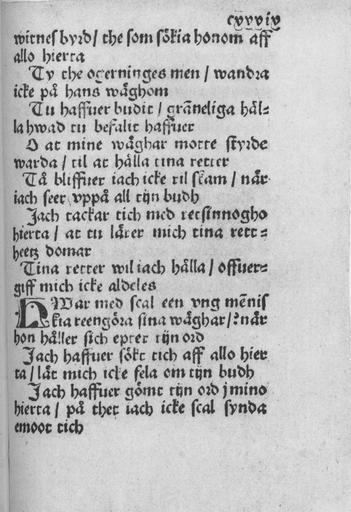 cxxxix
witnes byrd / the som sökia honom aff
allo hierta
Ty the ogerninges men / wandra
icke på hans wäghom
Tu haffuer budit / grāneliga häl-
la hwad tu befalit haffuer
O at mine wäghar motte styrde
warda / til at hälla tina retter
Tå bliffuer iach icke til skam / när
iach seer vppå all tijn budh
Jach tackar tich med retsinnogho
hierta / at tu lärer mich tina rett-
heetz domar
Tina retter wil iach hålla / offuer-
giff mich icke aldeles
HWar med scal een vng mēnis
kia reengöra sina wäghar / ? när
hon håller sich epter tijn ord
Jach haffuer sökt tich aff allo hier
ta / lät mich icke fela om tijn budh
Jach haffuer gömt tijn ord j mino
hierta / på thet iach icke scal synda
emoot tich